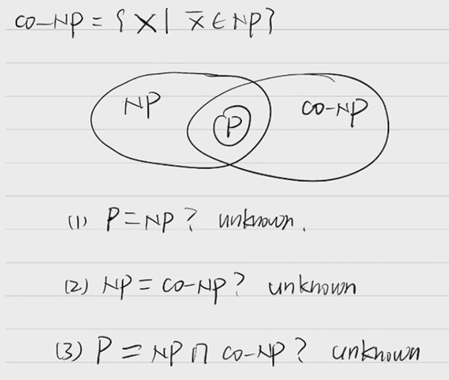 co-NP = { X | x̄ ∈ NP }
NP P co-NP
(1) P = NP ? unknown.
(2) NP = co-NP ? unknown
(3) P = NP ∩ co-NP ? unknown